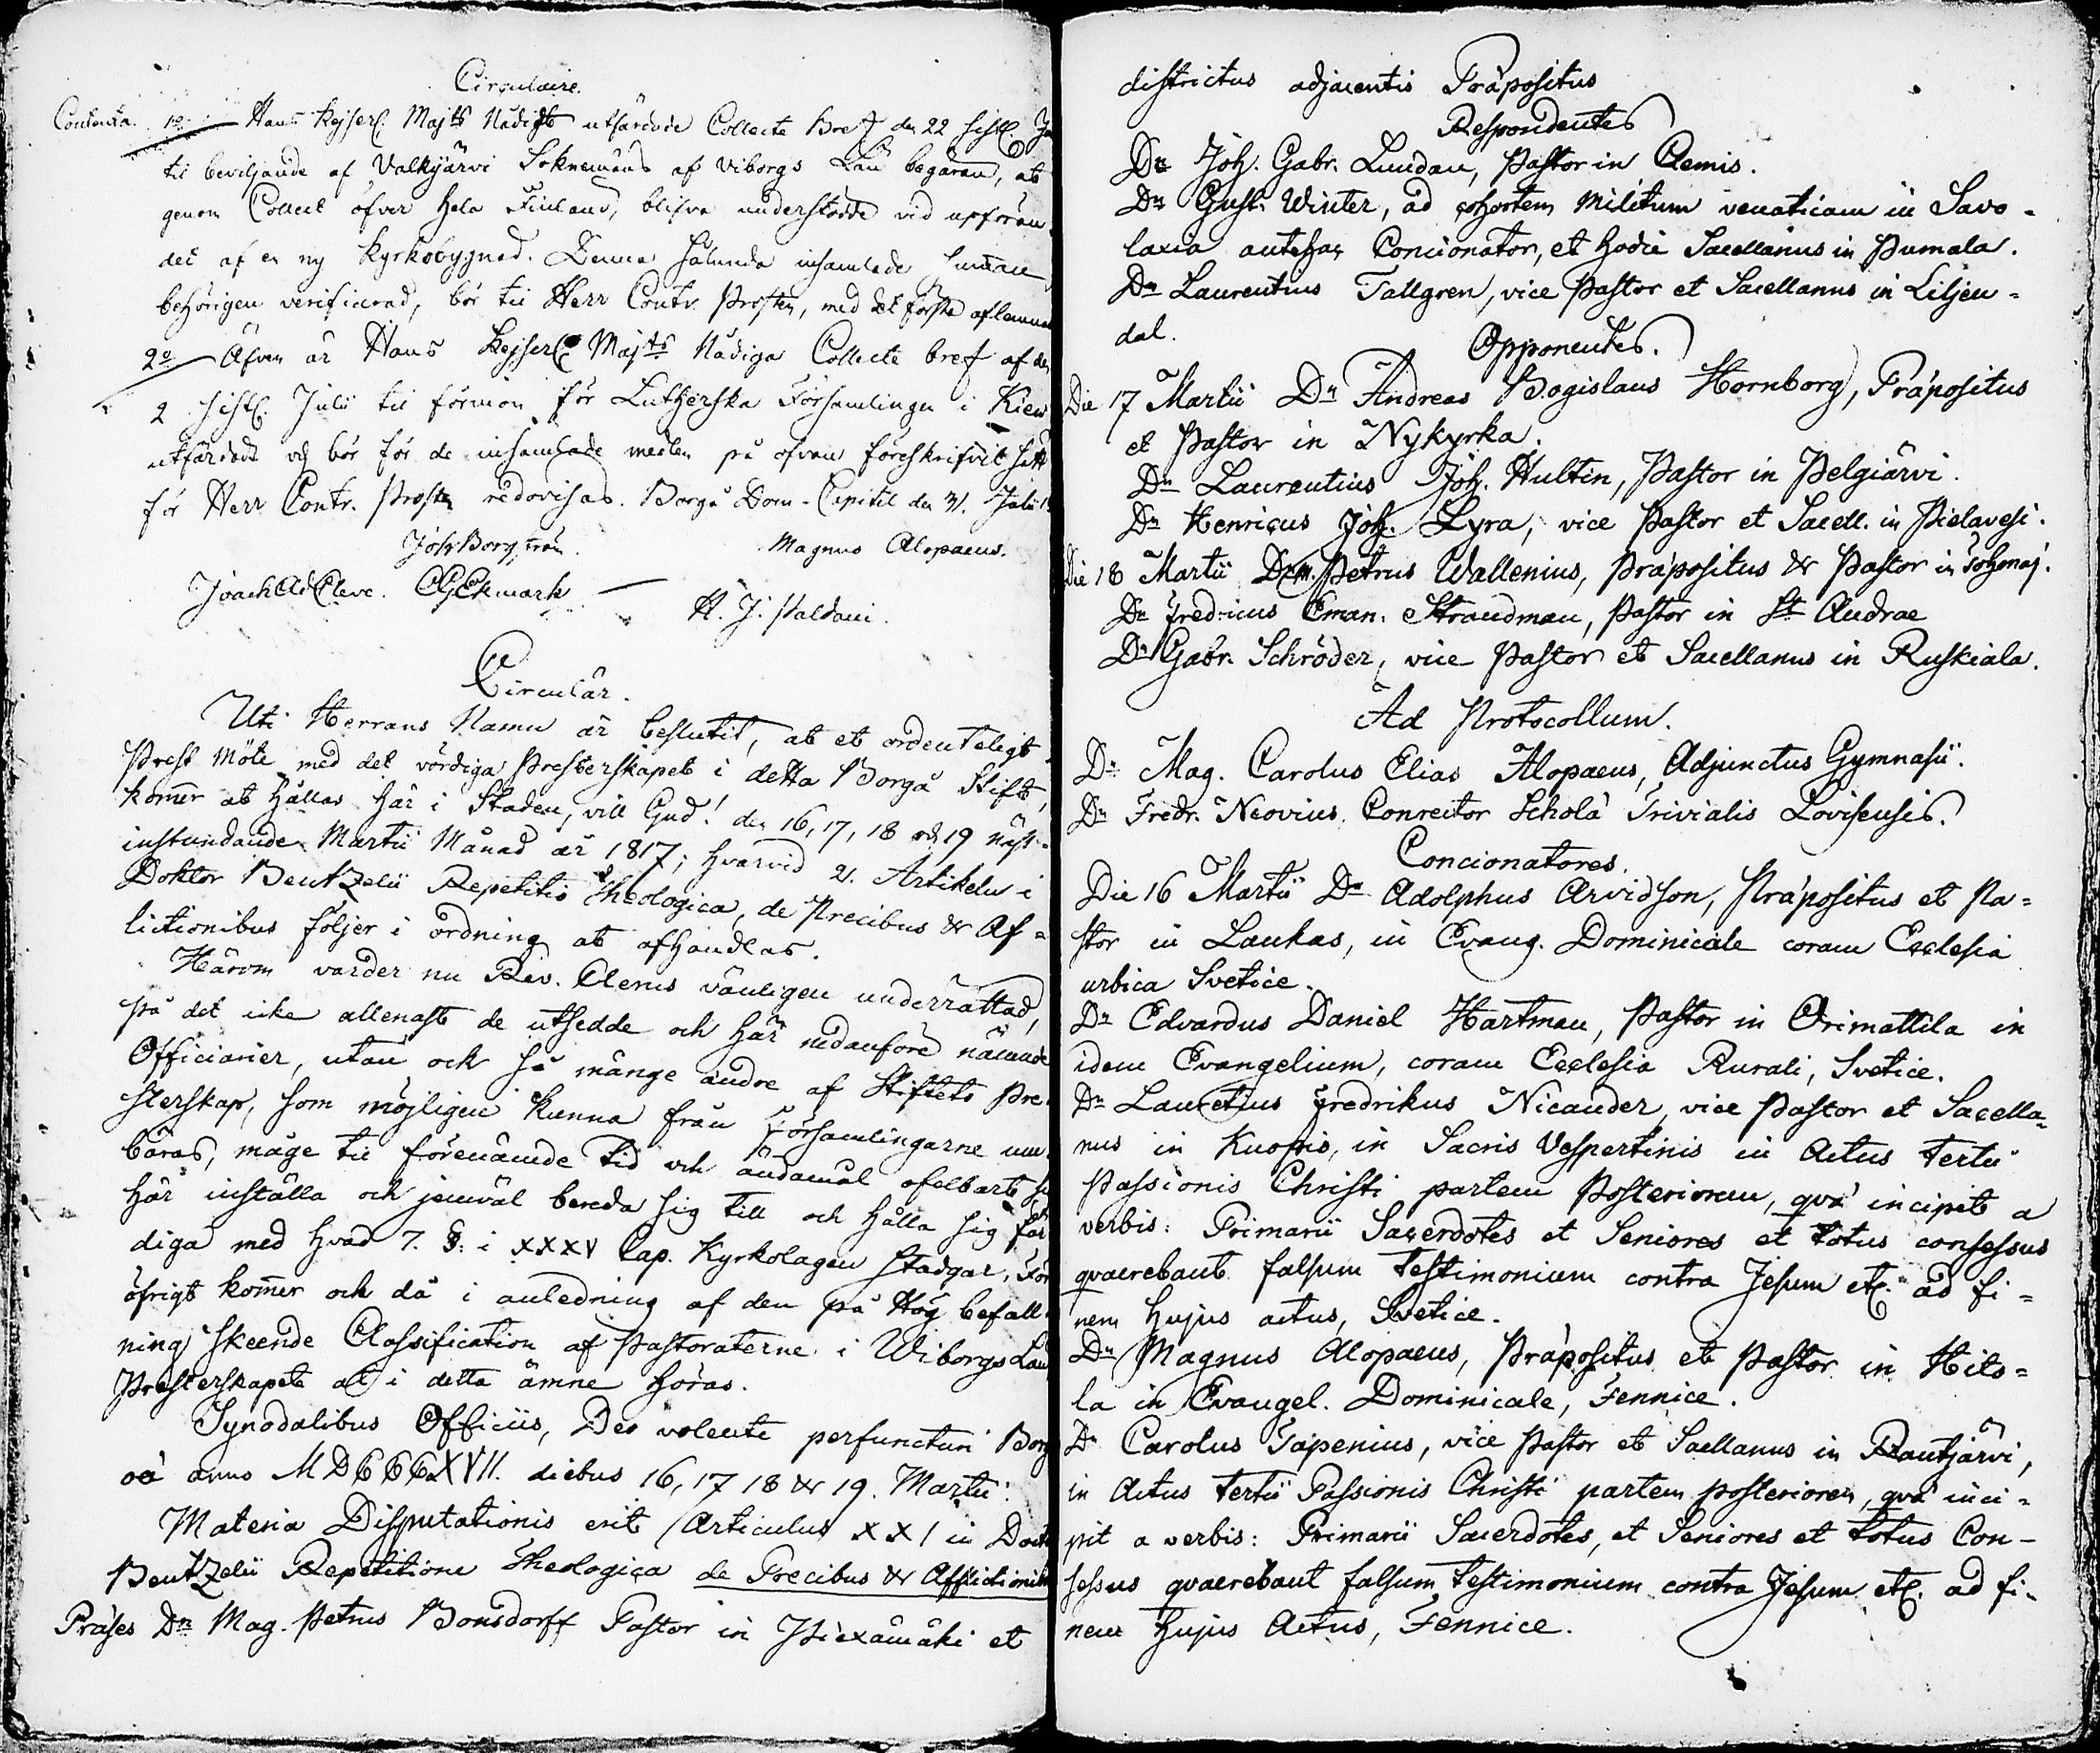 Circulaire.
Contenta. 1o Hans Kejserl. Majts Nådigst utfärdade Collecte Bref den 22 sistl.
til beviljande af Valkjärvi Soknemäns af Viborgs Län begäran, at
genom Collect öfver hela Finland, blifva understödde vid upföran
det af en ny Kyrkobygnad. Denna sålunda insamlade summan
behörigen verificerad, bör til Herr Contr. Prosten, med det första aflemnas
2o Äfven är Hans Kejserl. Majts Nådiga Collecte bref af den
2 sistl. Julii til förmon för Lutherska Församlingen i Kiew
utfärdadt och bör för de insamlade medlen på ofvan föreskrifvit sätt
för Herr Contr. Prosten redovisas. Borgå Dom-Capitel den 31. Julii
Magnus Alopaeus.
Joach Ad Cleve.
H. J. Paldani.
Circulär.
Uti Herrans Namn är beslutit, at et ordenteligt
Prest Möte med det vördiga Presterskapet i detta Borgå Stift,
kommer at hållas här i Staden, vill Gud! den 16, 17, 18 och 19 näst-
instundande Martii Månad år 1817; hvarvid 21. Artikeln i
Doktor Bentzelii Repetitio Theologica, de Precibus & Af=
lictionibus följer i ordning at afhandlas.
Härom varder nu Rev. Clerus vänligen underrättad,
på det icke allenast de utsedde och här nedanföre nämnde
Officianier, utan och så månge andre af Stiftets Pre
sterskap, som möjligen kunna från Församlingarne um
bäras, måge til förenämde tid och ändamål ofelbart sig
här inställa och jemväl bereda sig till och hålla sig fär
diga med hvad 7. §. i XXXV Cap. Kyrkolagen stadgar, För
öfrigt kommer och då i anledning af den på Hög befall
ning skeende Classification af Pastoraterne i Wiborgs Län
Presterskapet at i detta ämne höras.
Synodalibus Officiis, Deo volente perfuncturi Borg
oæ anno MDCCCXVII. diebus 16, 17 18 & 19. Martii.
Materia Disputationis erit Articulus XXI in Doct
Bentzelii Repetitione Theologica de Precibus & Afflictionibus
Präses Dn Mag. Petrus Bonsdorff Pastor in Jåexämäki et
districtus adjacentis Præpositus
Respondentes
Dn Joh. Gabr. Lundan, Pastor in Clemis.
Dn Gust. Winter, ad cohortem Militum venaticam in Savo-
laxia antehac Concionator, et hodie Sacellanus in Pumala.
Dn Laurentius Tallgren, vice Pastor et Sacellanus in Liljen=
dal.
Opponentes.
Die 17 Martii Dn Andreas Bogislaus Hornborg, Præpositus
et Pastor in Nykyrka.
Dn Laurentius Joh. Hultin, Pastor in Pelgjärvi.
Dn Henricus Joh. Lyra, vice Pastor et Sacell. in Pielavesi.
Die 18 Martii Petrus Wallenius, Præpositus & Pastor in
Dn Fredricus Eman. Strandman, Pastor in St Andrae
Dn Gabr. Schröder, vice Pastor et Sacellanus in Ruskiala.
Ad Protocollum.
Dn Mag. Carolus Elias Alopaeus, Adjunctus Gymnasii.
Dn Fredr. Neovius. Conrector Scholæ Trivialis Lovisensis.
Concionatores.
Die 16 Martii Dn Adolphus Arvidsson, Præpositus et Pa=
stor in Laukas, in Evang. Dominicale coram Ecclesia
urbica Svetice.
Dn Edvardus Daniel Hartman, Pastor in Orimattila in
idem Evangelium, coram Ecclesia Rurali, Svetice.
Dn Lauretius Fredrikus Nicander, vice Pastor et Sacella=
nus in Kuopio, in Sacris Vespertinis in Actus tertii
Passionis Christi partem Posteriorem, qvæ incipit a
verbis: Primarii Sacerdotes et Seniores et totus consessus
qvaerebant falsum testimonium contra Jesum etc. ad fi=
nem hujus actus, Svetice.
Dn Magnus Alopaeus, Præpositus et Pastor in Hito=
la in Evangel. Dominicale, Fennice.
Dn Carolus Tapenius, vice Pastor et Saellanus in Rautjärvi,
in Actus tertii Passionis Christi partem posteriorem, qvæ inci=
pit a verbis: Primarii Sacerdotes, et Seniores et totus Con-
sessus qvaerebant falsum testimonium contra Jesum etc. ad fi-
nem hujus Actus, Fennice.